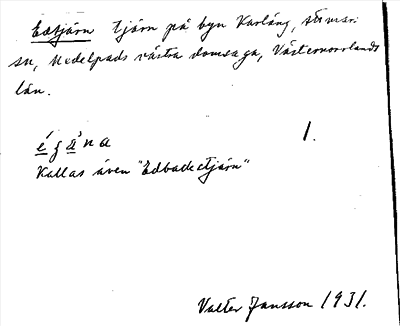 Edtjärn tjärn på byn Karläng, Stömari
sn, Medelpads västra domsaga, Västernorrlands
län.
é ʒ ä̀ n a 1.
Kallas även "Edbacktjärn"
Valter Jansson 1931.